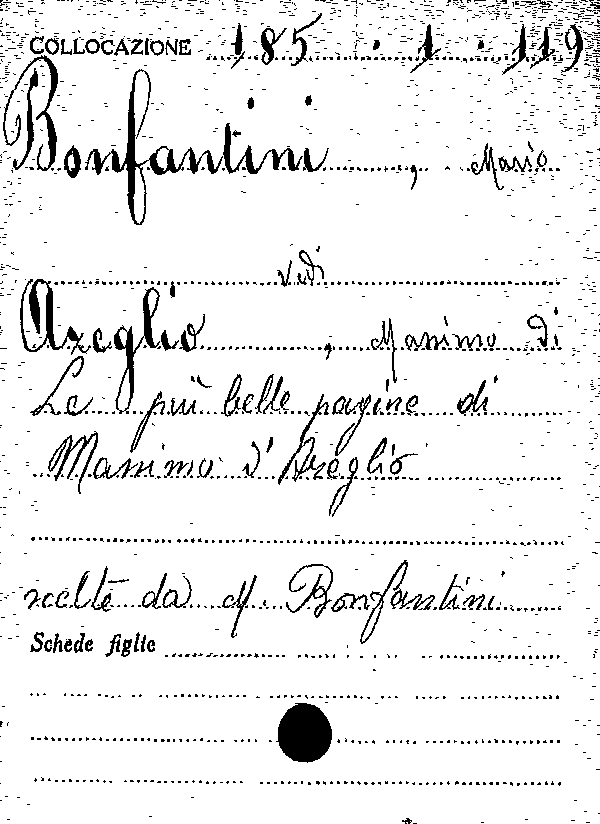 COLLOCAZIONE 185 · 1 · 119
Bonfantini, Mario
vedi
Azeglio, Massimo di
Le più belle pagine di
Massimo d'Azeglio
scelte da M. Bonfantini
Schede figlie